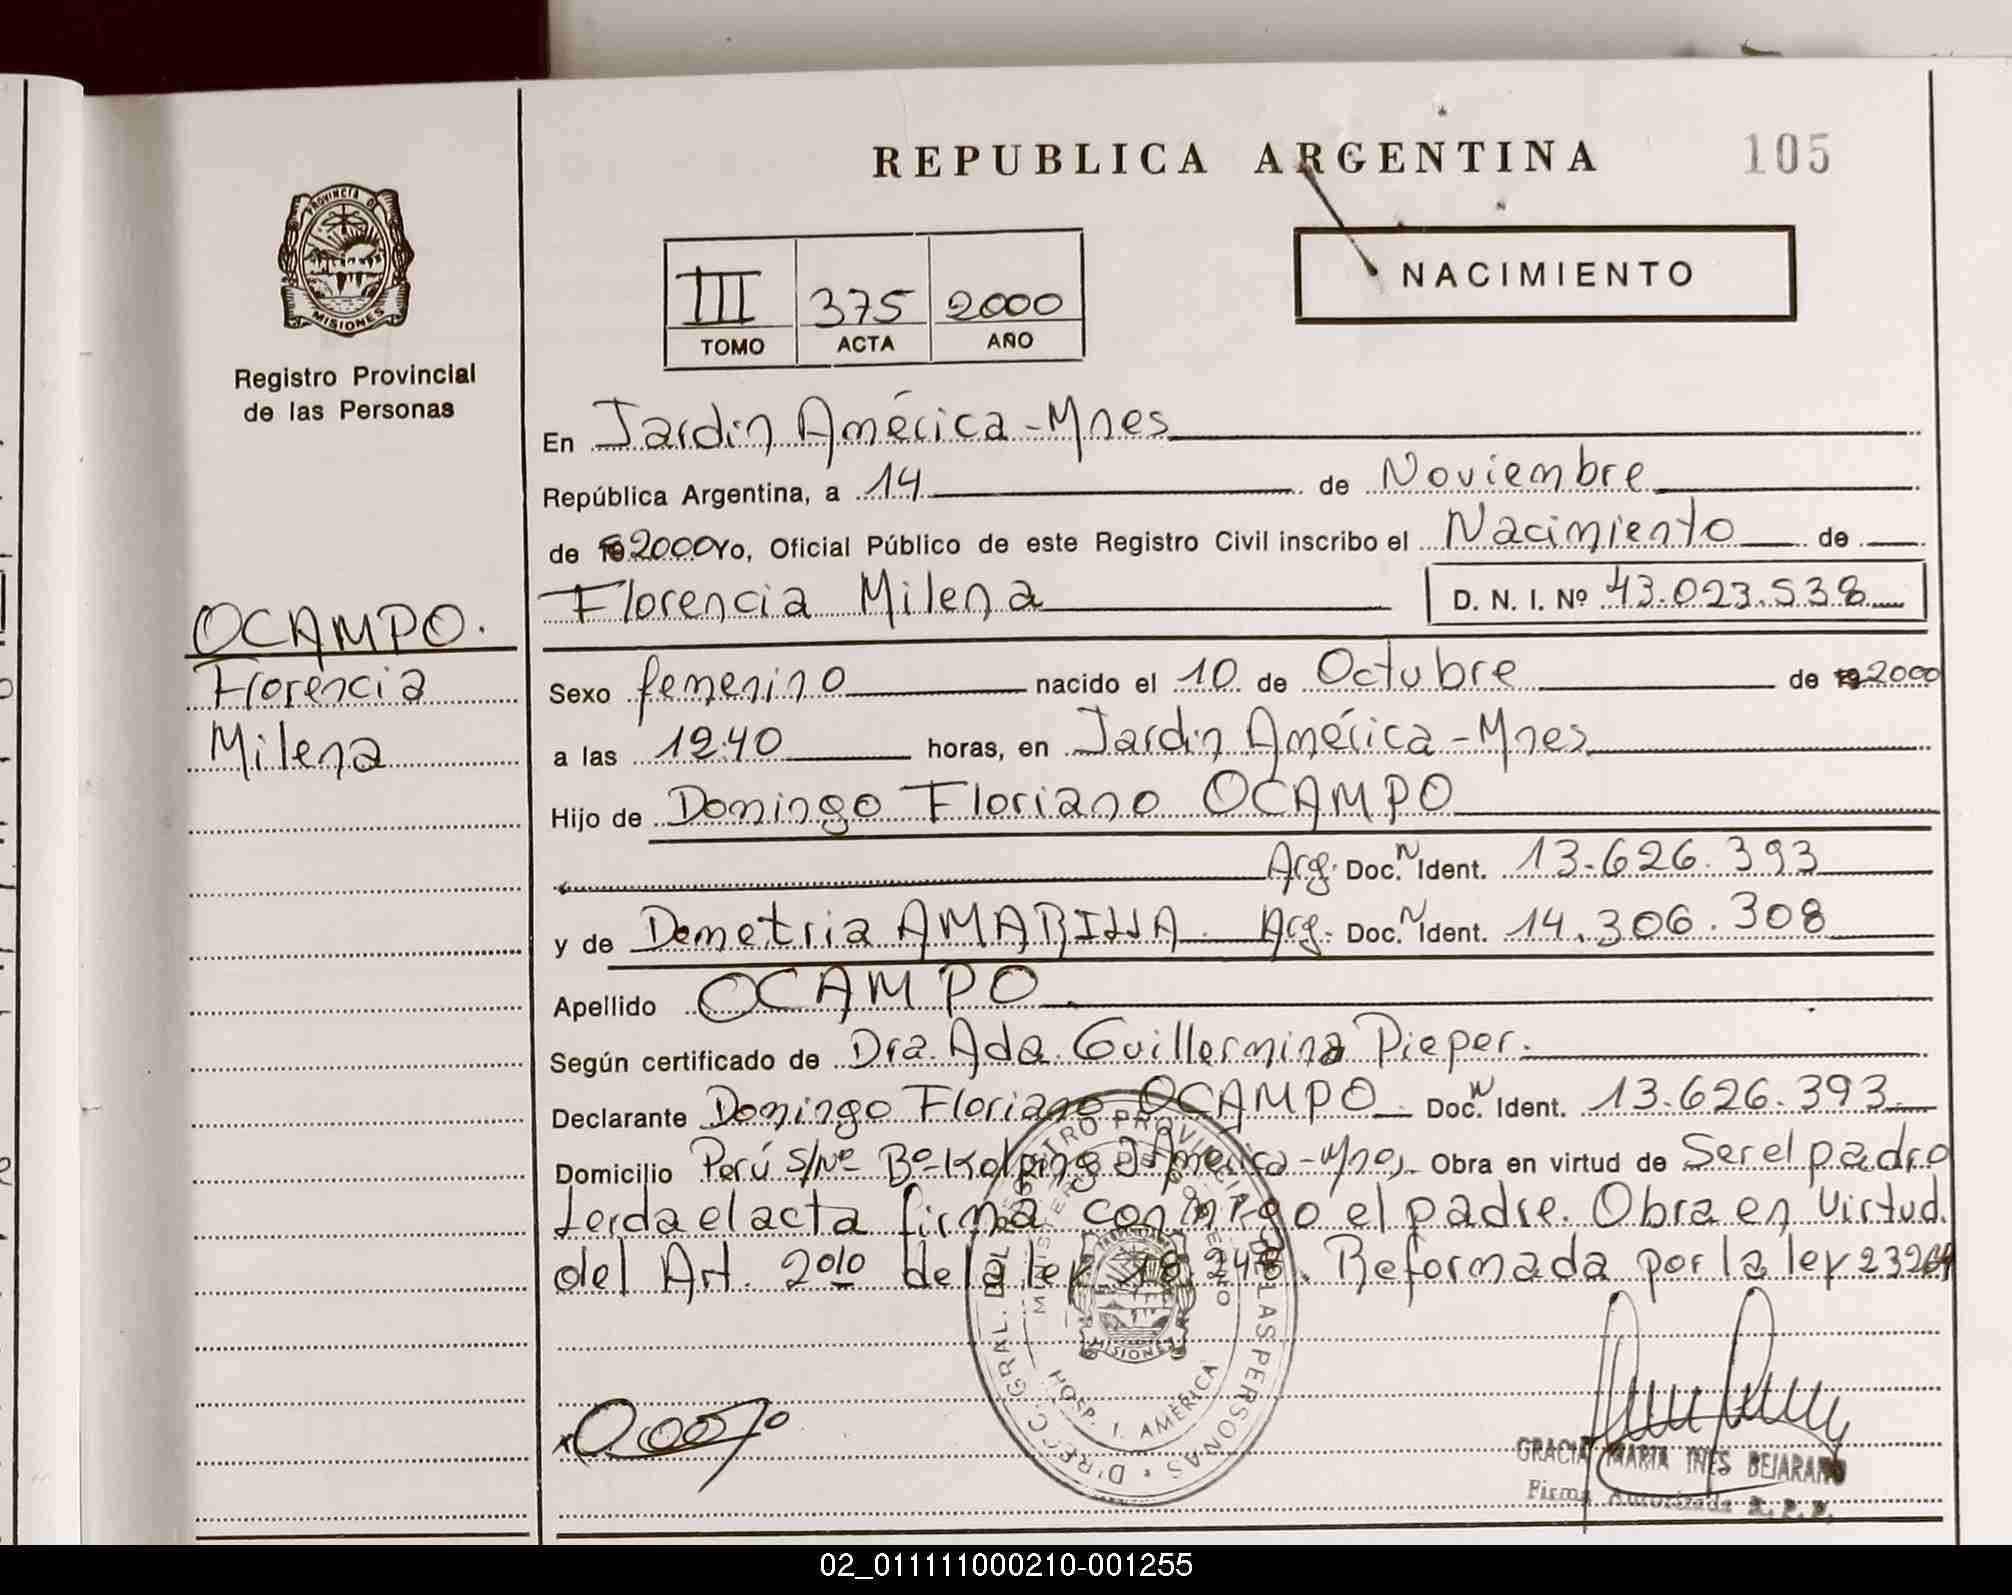 REPUBLICA ARGENTINA 105
PROVINCIA DE
MISIONES
Registro Provincial
de las Personas
NACIMIENTO
III 375 2000
TOMO ACTA AÑO
En Jardin América - Mnes
República Argentina, a 14 de Noviembre
de 2000 Yo, Oficial Público de este Registro Civil inscribo el Nacimiento de
Florencia Milena D. N. I. Nº 43.023.538
OCAMPO.
Florencia
Milena
Sexo femenino nacido el 10 de Octubre de 2000
a las 12:40 horas, en Jardin América - Mnes
Hijo de Domingo Floriano OCAMPO
Arg. Doc. N Ident. 13.626.393
y de Demetria AMARILLA. Arg. Doc. N Ident. 14.306.308
Apellido OCAMPO.
Según certificado de Dra. Ada Guillermina Pieper.
Declarante Domingo Floriano OCAMPO Doc. N Ident. 13.626.393
Domicilio Perú S/Nº Bº Kolping J. América - Mnes, Obra en virtud de Ser el padre
Leida el acta firma conmigo el padre. Obra en Virtud
del Art. 2010 de la ley 18.248. Reformada por la ley 23264
DIREC. GRAL. DEL REGISTRO PROVINCIAL DE LAS PERSONAS
MINISTERIO DE GOBIERNO
MISIONES
HOSP. I. AMÉRICA
GRACIA MARIA INES BEJARANO
Firma Autorizada R. P. P.
02_011111000210-001255